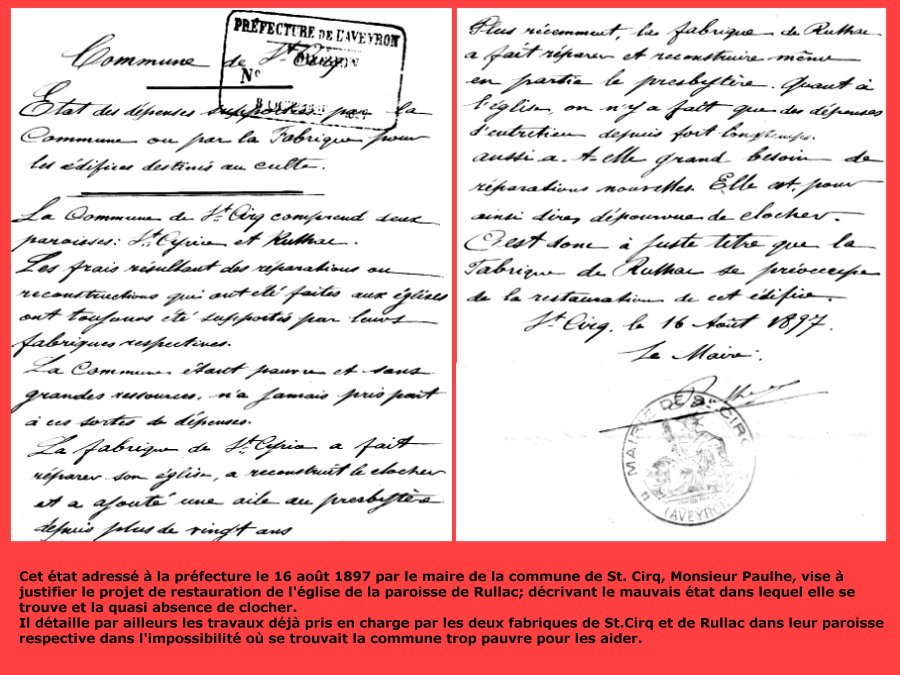 PRÉFECTURE DE L'AVEYRON
N°
Commune de St Cirq
Etat des dépenses supportées par la
Commune ou par la Fabrique pour
les édifices destinés au culte.
La Commune de St Cirq comprend deux
paroisses: St Cyrice et Rullac.
Les frais résultant des réparations ou
reconstructions qui ont été faites aux églises
ont toujours été supportés par leurs
fabriques respectives.
La Commune étant pauvre et sans
grandes ressources, n'a jamais pris part
à ces sortes de dépenses.
La fabrique de St Cyrice a fait
réparer son église, a reconstruit le clocher
et a ajouté une aile au presbytère
depuis plus de vingt ans
Plus récemment, la fabrique de Rullac
a fait réparer et reconstruire même
en partie le presbytère. Quant à
l'église, on n'y a fait que des dépenses
d'entretien depuis fort longtemps.
aussi a-t-elle grand besoin de
réparations nouvelles. Elle est, pour
ainsi dire, dépourvue de clocher.
C'est donc à juste titre que la
Fabrique de Rullac se préoccupe
de la restauration de cet édifice.
St Cirq, le 16 Août 1897.
Le Maire:
MAIRIE DE St CIRQ
(AVEYRON)
Cet état adressé à la préfecture le 16 août 1897 par le maire de la commune de St. Cirq, Monsieur Paulhe, vise à
justifier le projet de restauration de l'église de la paroisse de Rullac; décrivant le mauvais état dans lequel elle se
trouve et la quasi absence de clocher.
Il détaille par ailleurs les travaux déjà pris en charge par les deux fabriques de St.Cirq et de Rullac dans leur paroisse
respective dans l'impossibilité où se trouvait la commune trop pauvre pour les aider.